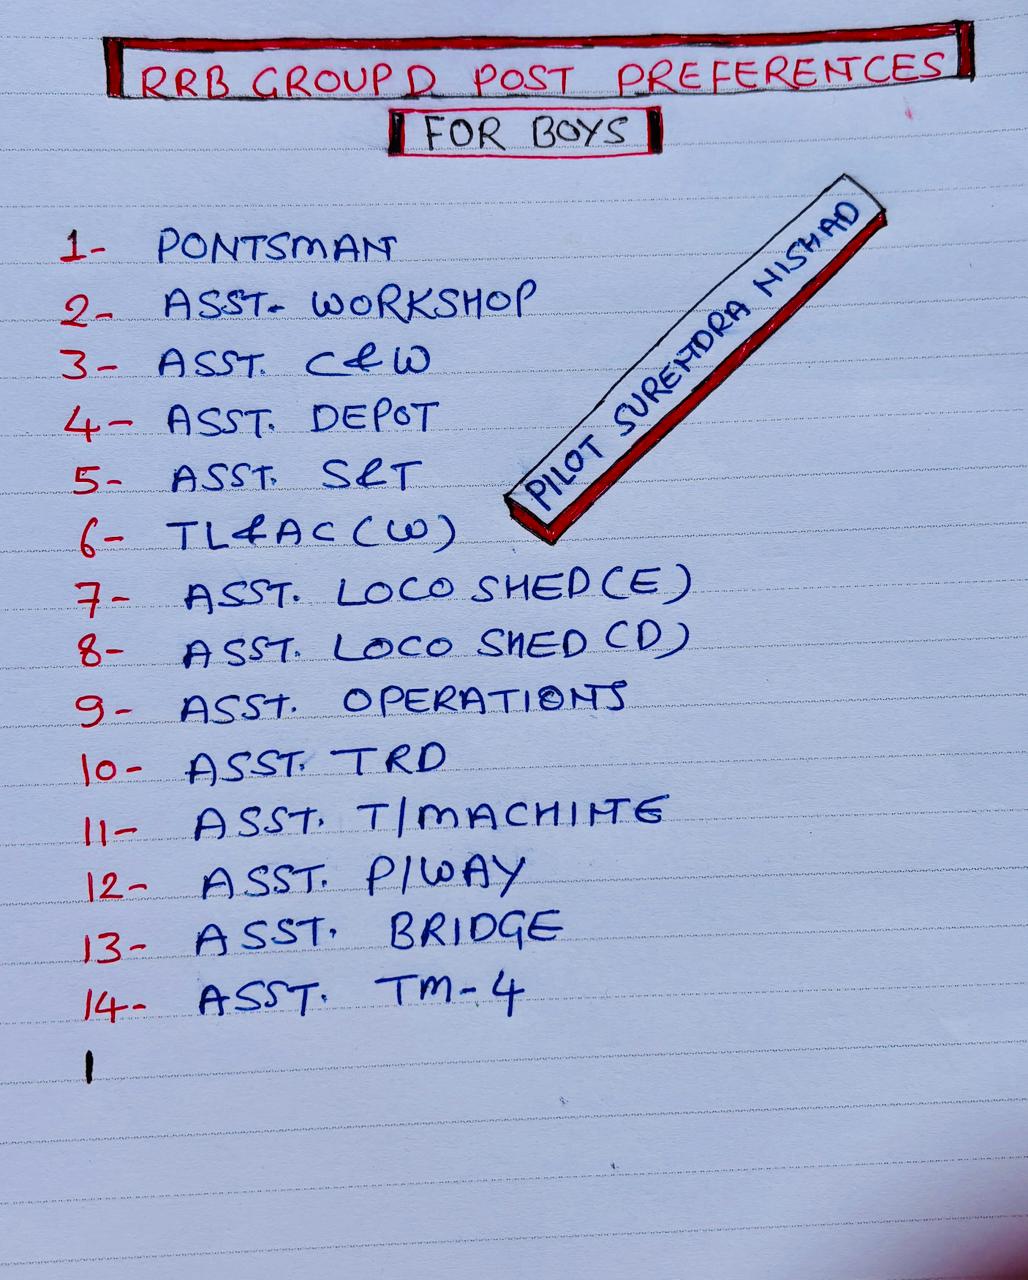 RRB GROUP D POST PREFERENCES
FOR BOYS
PILOT SURENDRA NISHAD
1- PONTSMAN
2- ASST- WORKSHOP
3- ASST. C&W
4- ASST. DEPOT
5- ASST. S&T
6- TL&AC (W)
7- ASST. LOCO SHED (E)
8- ASST. LOCO SHED (D)
9- ASST. OPERATIONS
10- ASST. TRD
11- ASST. T/MACHINE
12- ASST. P/WAY
13- ASST. BRIDGE
14- ASST. TM-4